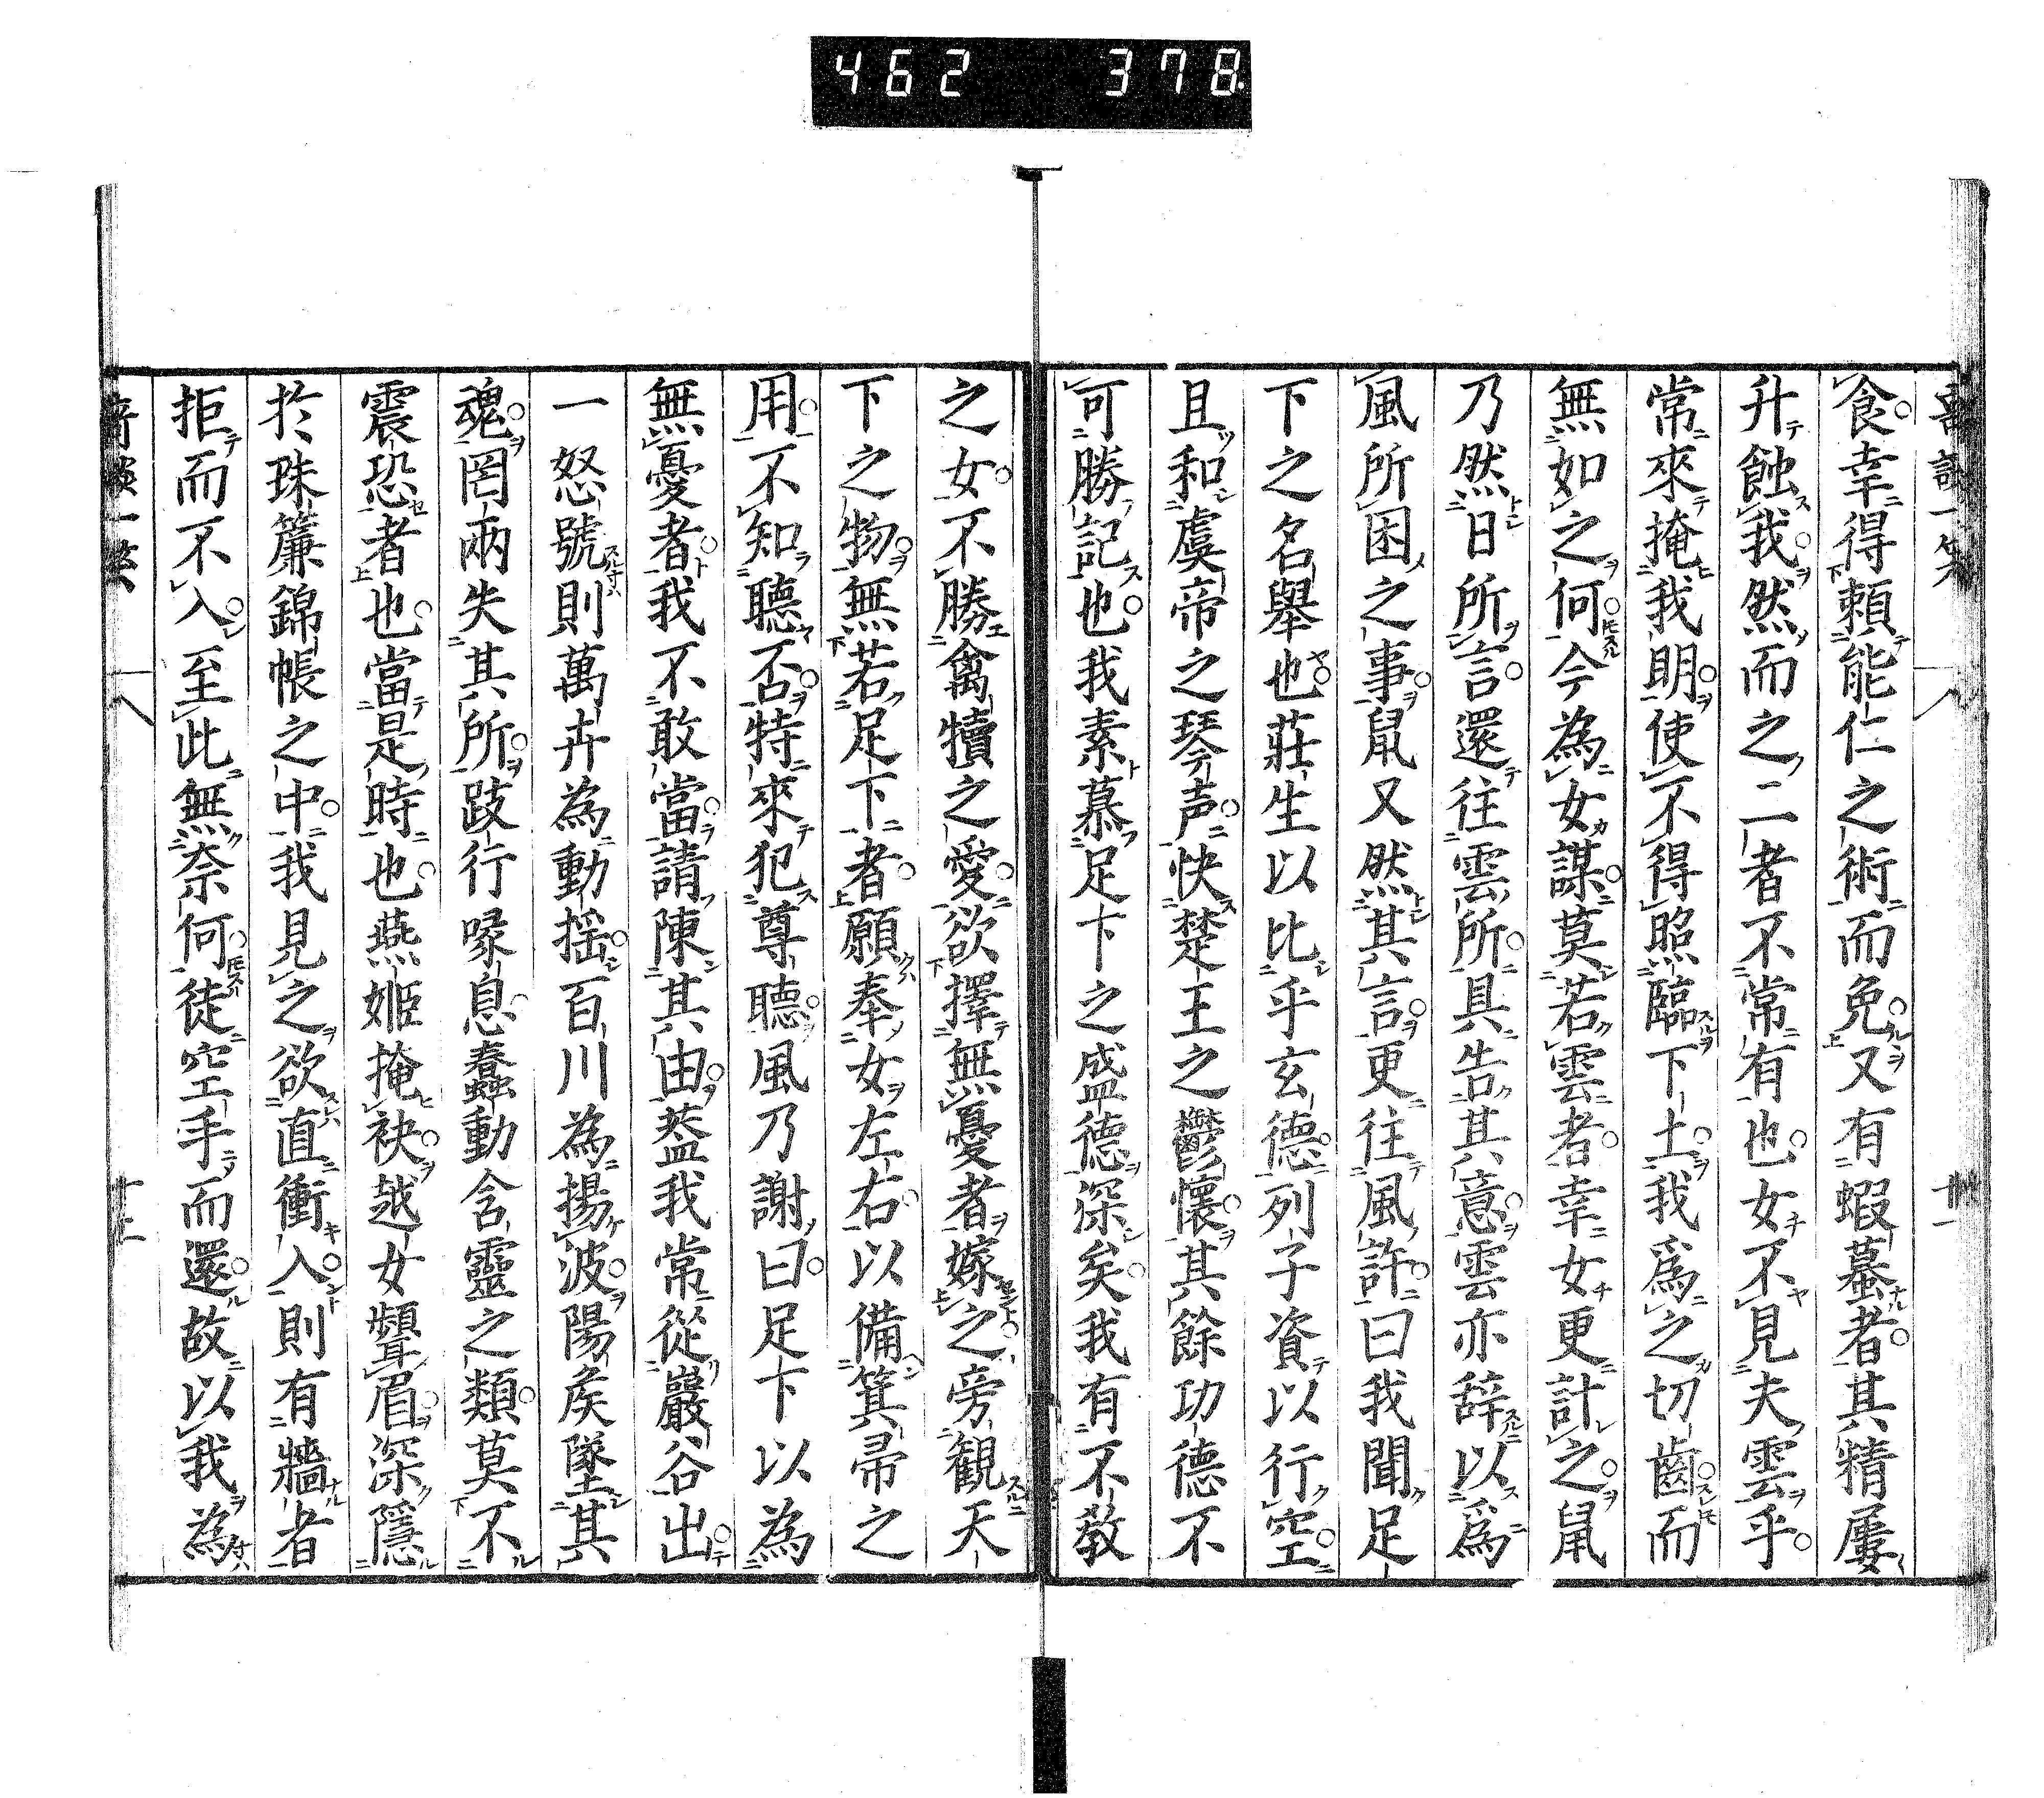 462 378
食幸得賴能仁之術而免又有蝦蟇者其精屢
升蝕我然而之二者不常有也女不見夫雲乎
常來掩我明使不得照臨下土我爲之切齒而
無如之何今為女謀莫若雲者幸女更計之鼠
乃然日所言還往雲所具告其意雲亦辞以爲
風所困之事鼠又然其言更往風許曰我聞足
下之名舉也莊生以比乎玄德列子資以行空
且和虞帝之琴声快楚王之鬱懷其餘功德不
可勝記也我素慕足下之盛德深矣我有不教
之女不勝禽犢之愛欲擇無憂者嫁之旁観天
下之物無若足下者願奉女左右以備箕帚之
用不知聽否特來犯尊聽風乃謝曰足下以為
無憂者我不敢當請陳其由葢我常從巖谷出
一怒號則萬卉為動揺百川為揚波陽矦墜其
魂罔兩失其所跂行喙息蠢動含靈之類莫不
震恐者也當是時也燕姬掩袂越女顰眉深隱
於珠簾錦帳之中我見之欲直衝入則有牆者
拒而不入至此無奈何徒空手而還故以我為